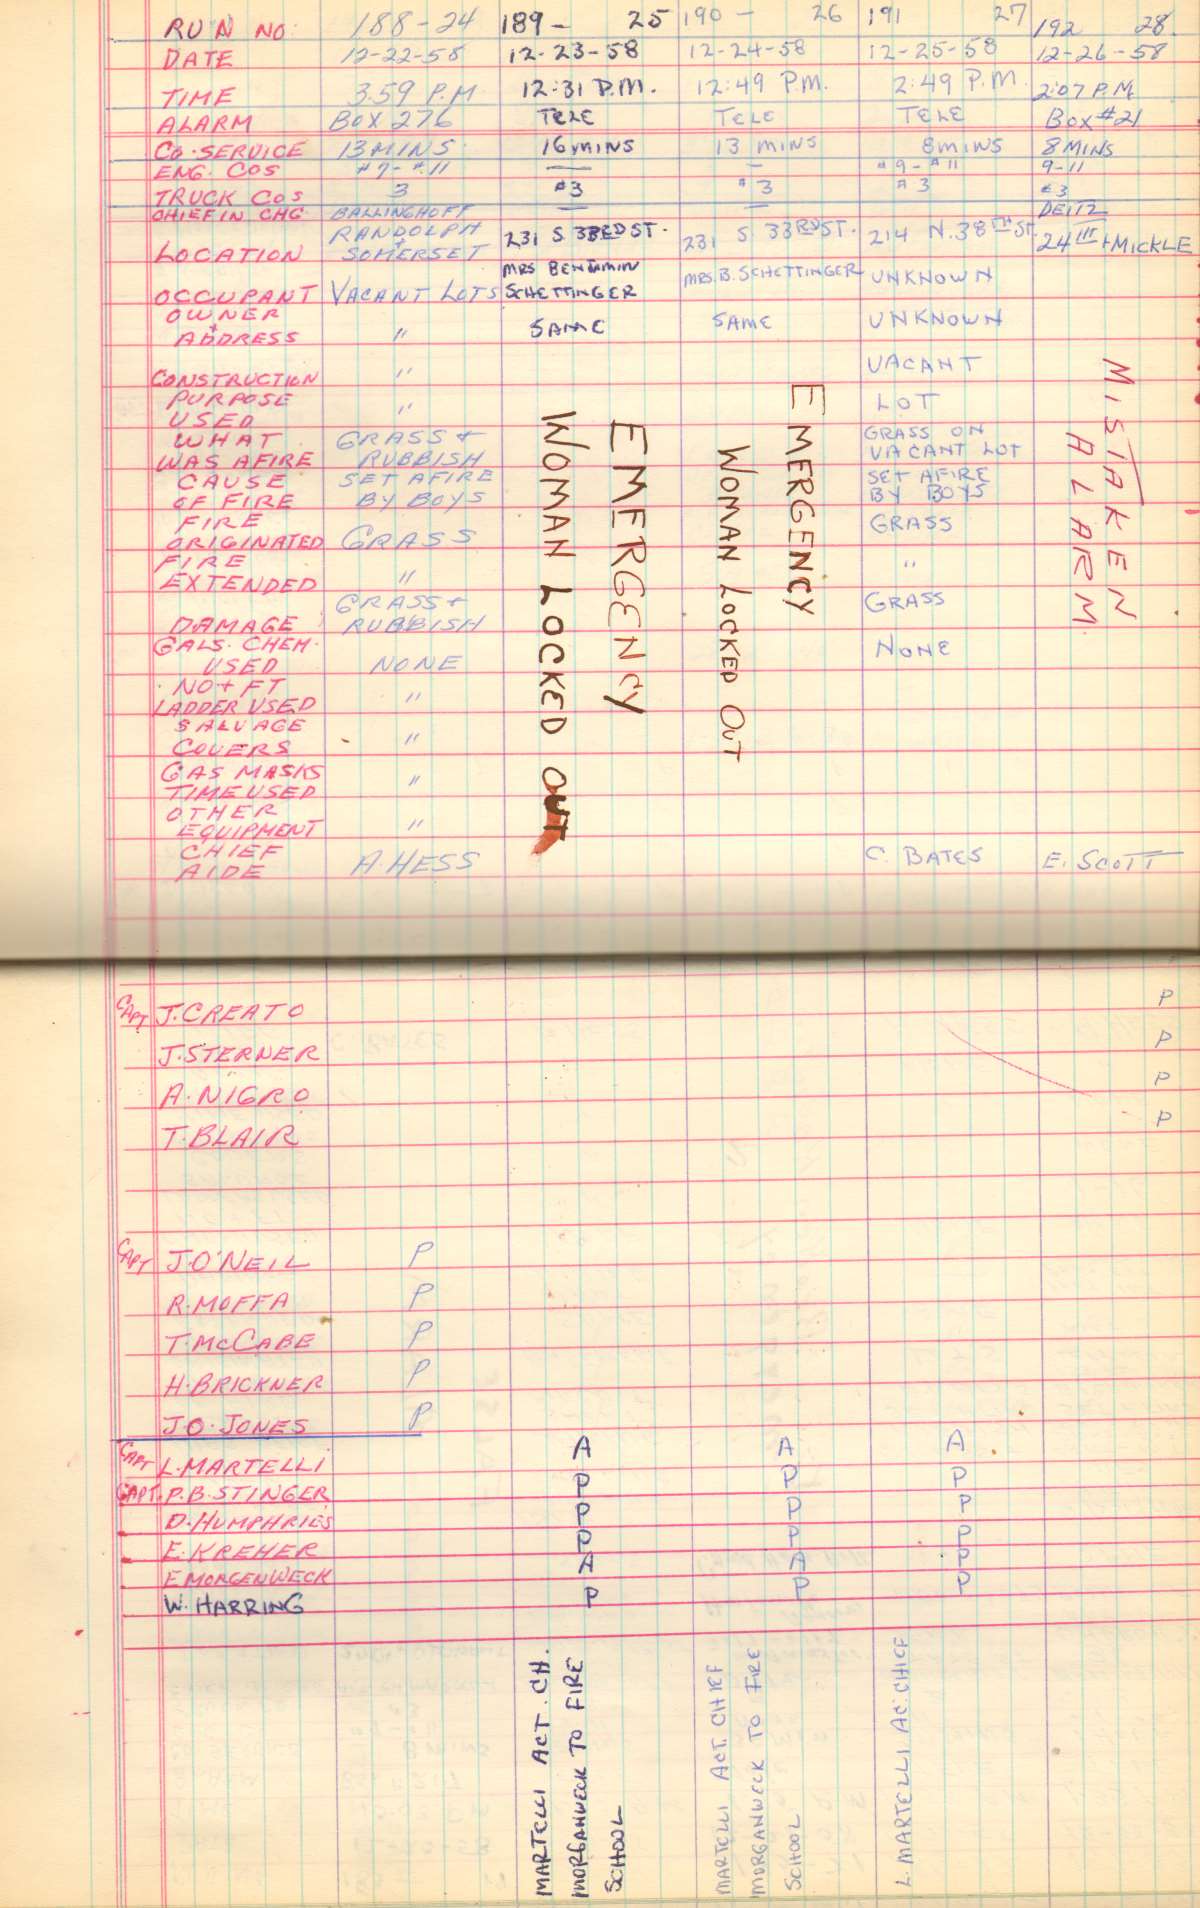 RUN NO. 188-24 189- 25 190- 26 191 27 192 28
DATE 12-22-58 12-23-58 12-24-58 12-25-58 12-26-58
TIME 3:59 P.M 12:31 P.M. 12:49 P.M. 2:49 P.M. 2:07 P.M.
ALARM BOX 276 TELE TELE TELE BOX #21
CO. SERVICE 13 MINS. 16 MINS 13 MINS 8 MINS 8 MINS
ENG. COS #9-#11 — — #9-#11 9-11
TRUCK COS 3 #3 #3 #3 #3
CHIEF IN CHG. BALLINGHOFF — — DEITZ
LOCATION RANDOLPH + SOMERSET 231 S. 33RD ST. 231 S. 33RD ST. 214 N. 38TH ST. 24TH + MICKLE
OCCUPANT VACANT LOTS MRS BENJAMIN SCHETTINGER MRS. B. SCHETTINGER UNKNOWN
OWNER + ADDRESS " SAME SAME UNKNOWN
CONSTRUCTION " VACANT
PURPOSE USED " LOT
WHAT WAS AFIRE GRASS + RUBBISH GRASS ON VACANT LOT
CAUSE OF FIRE SET AFIRE BY BOYS SET AFIRE BY BOYS
FIRE ORIGINATED GRASS GRASS
FIRE EXTENDED " "
DAMAGE GRASS + RUBBISH GRASS
GALS. CHEM. USED NONE NONE
NO + FT LADDER USED "
SALVAGE COVERS "
GAS MASKS TIME USED "
OTHER EQUIPMENT "
CHIEF AIDE A. HESS C. BATES E. SCOTT
EMERGENCY
WOMAN LOCKED OUT
EMERGENCY
WOMAN LOCKED OUT
MISTAKEN
ALARM
CAPT J. CREATO P
J. STERNER P
A. NIGRO P
T. BLAIR P
CAPT J. O'NEIL P
R. MOFFA P
T. McCABE P
H. BRICKNER P
J. O. JONES P
CAPT L. MARTELLI A A A
CAPT. P. B. STINGER P P P
D. HUMPHRIES P P P
E. KREHER P P P
E MORGENWECK A A P
W. HARRING P P P
MARTELLI ACT. CH.
MORGANWECK TO FIRE
SCHOOL
MARTELLI ACT. CHIEF
MORGANWECK TO FIRE
SCHOOL
L. MARTELLI AC. CHIEF